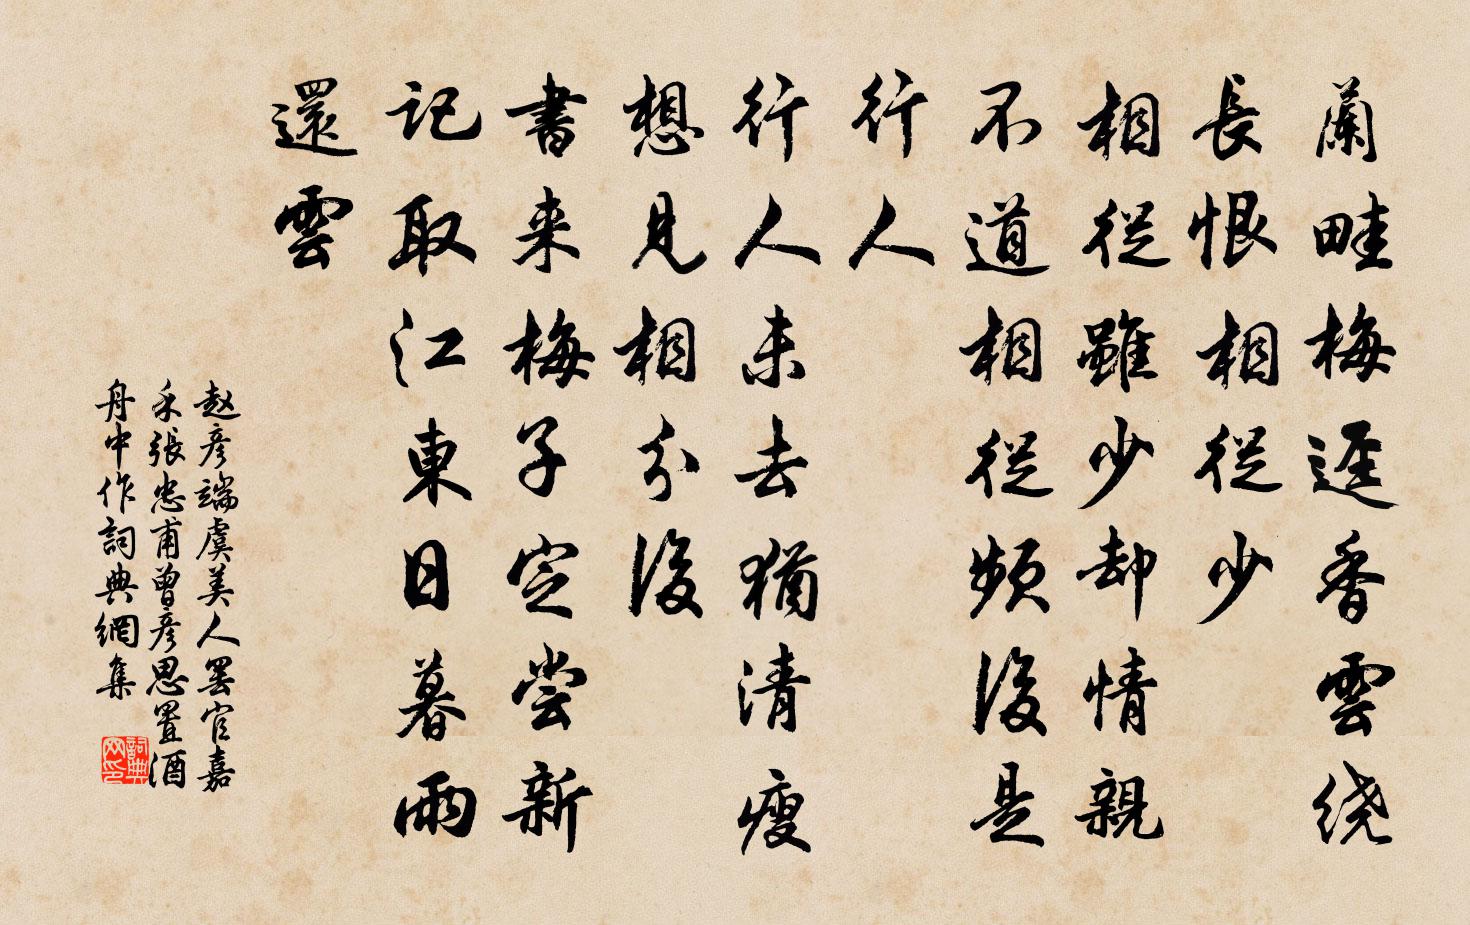 蘭畦梅逕香雲绕
長恨相從少
相從雖少却情親
不道相從頻後是
行人
行人未去猶清瘦
想見相分後
書来梅子定尝新
記取江東日暮雨
還雲
赵彦端虞美人罢官嘉
禾張忠甫曾彦思置酒
舟中作詞典網集
詞典
网印